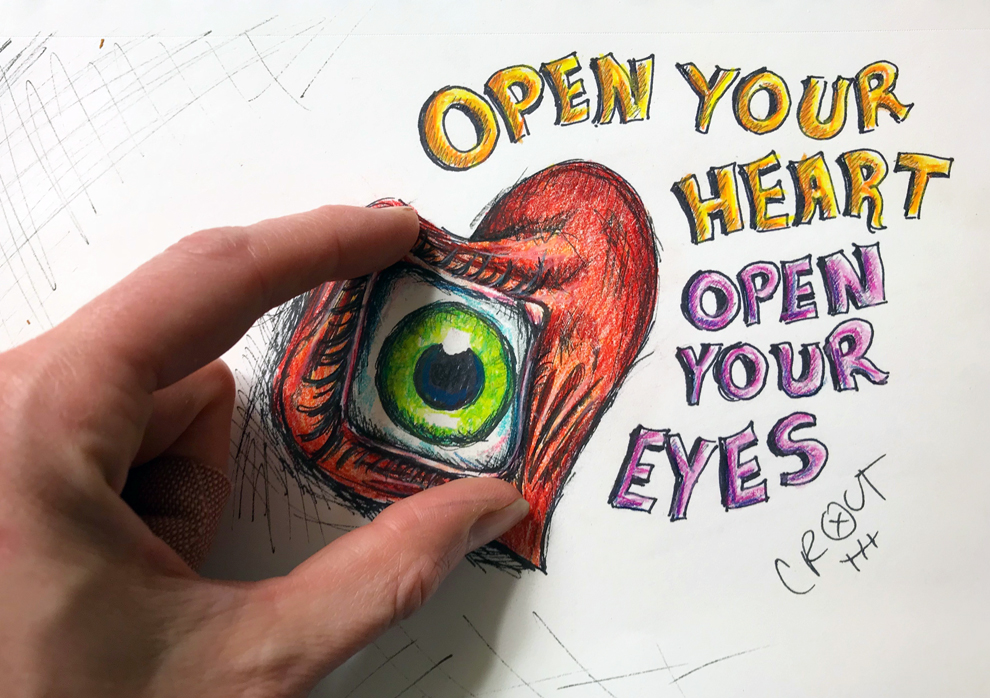 OPEN YOUR
HEART
OPEN
YOUR
EYES
CROUT